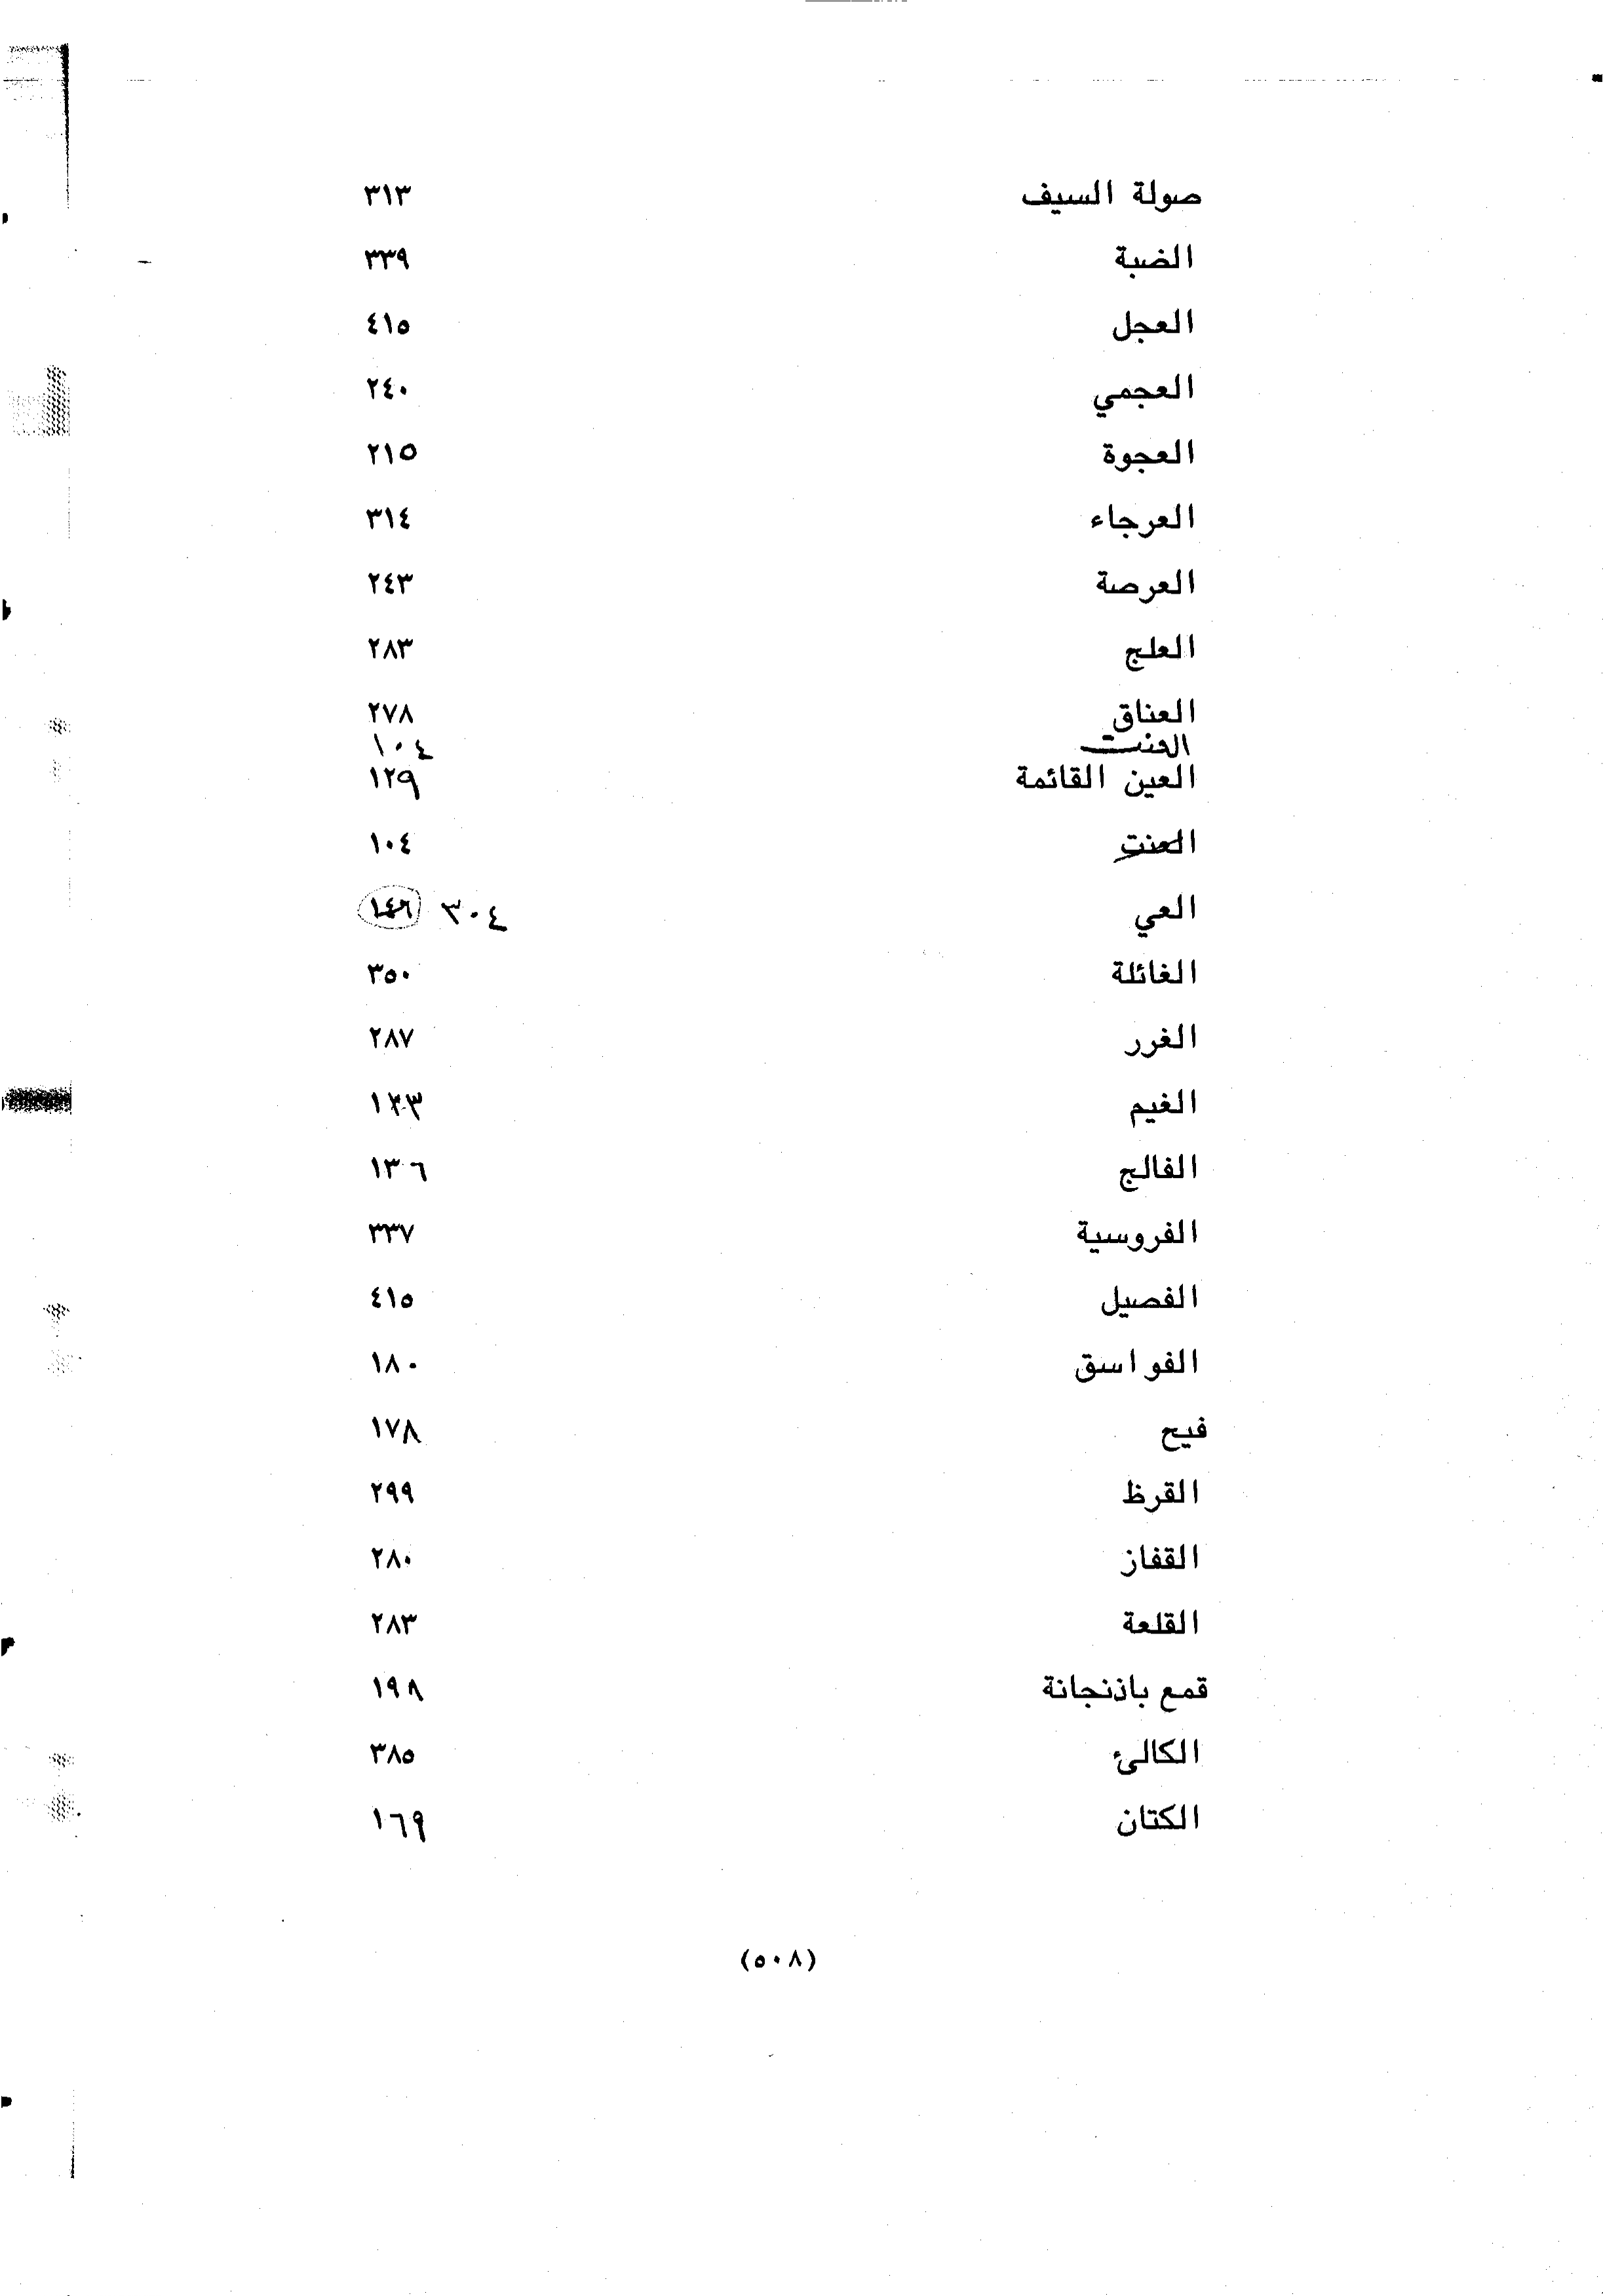 صولة السيف ٣١٣
الضبة ٣٣٩
العجل ٤١٥
العجمي ٢٤٠
العجوة ٢١٥
العرجاء ٣١٤
العرصة ٢٤٣
العلج ٢٨٣
العناق ٢٧٨
العنت ١٠٤
العين القائمة ١٢٩
العنت ١٠٤
العي ١٤٦ ٣٠٤
الغائلة ٣٥٠
الغرر ٢٨٧
الغيم
الفالج ١٣٦
الفروسية ٣٣٧
الفصيل ٤١٥
الفواسق ١٨٠
فيح ١٧٨
القرظ ٢٩٩
القفاز ٢٨٠
القلعة ٢٨٣
قمع باذنجانة ١٩٨
الكالئ ٣٨٥
الكتان ١٦٩
(٥٠٨)